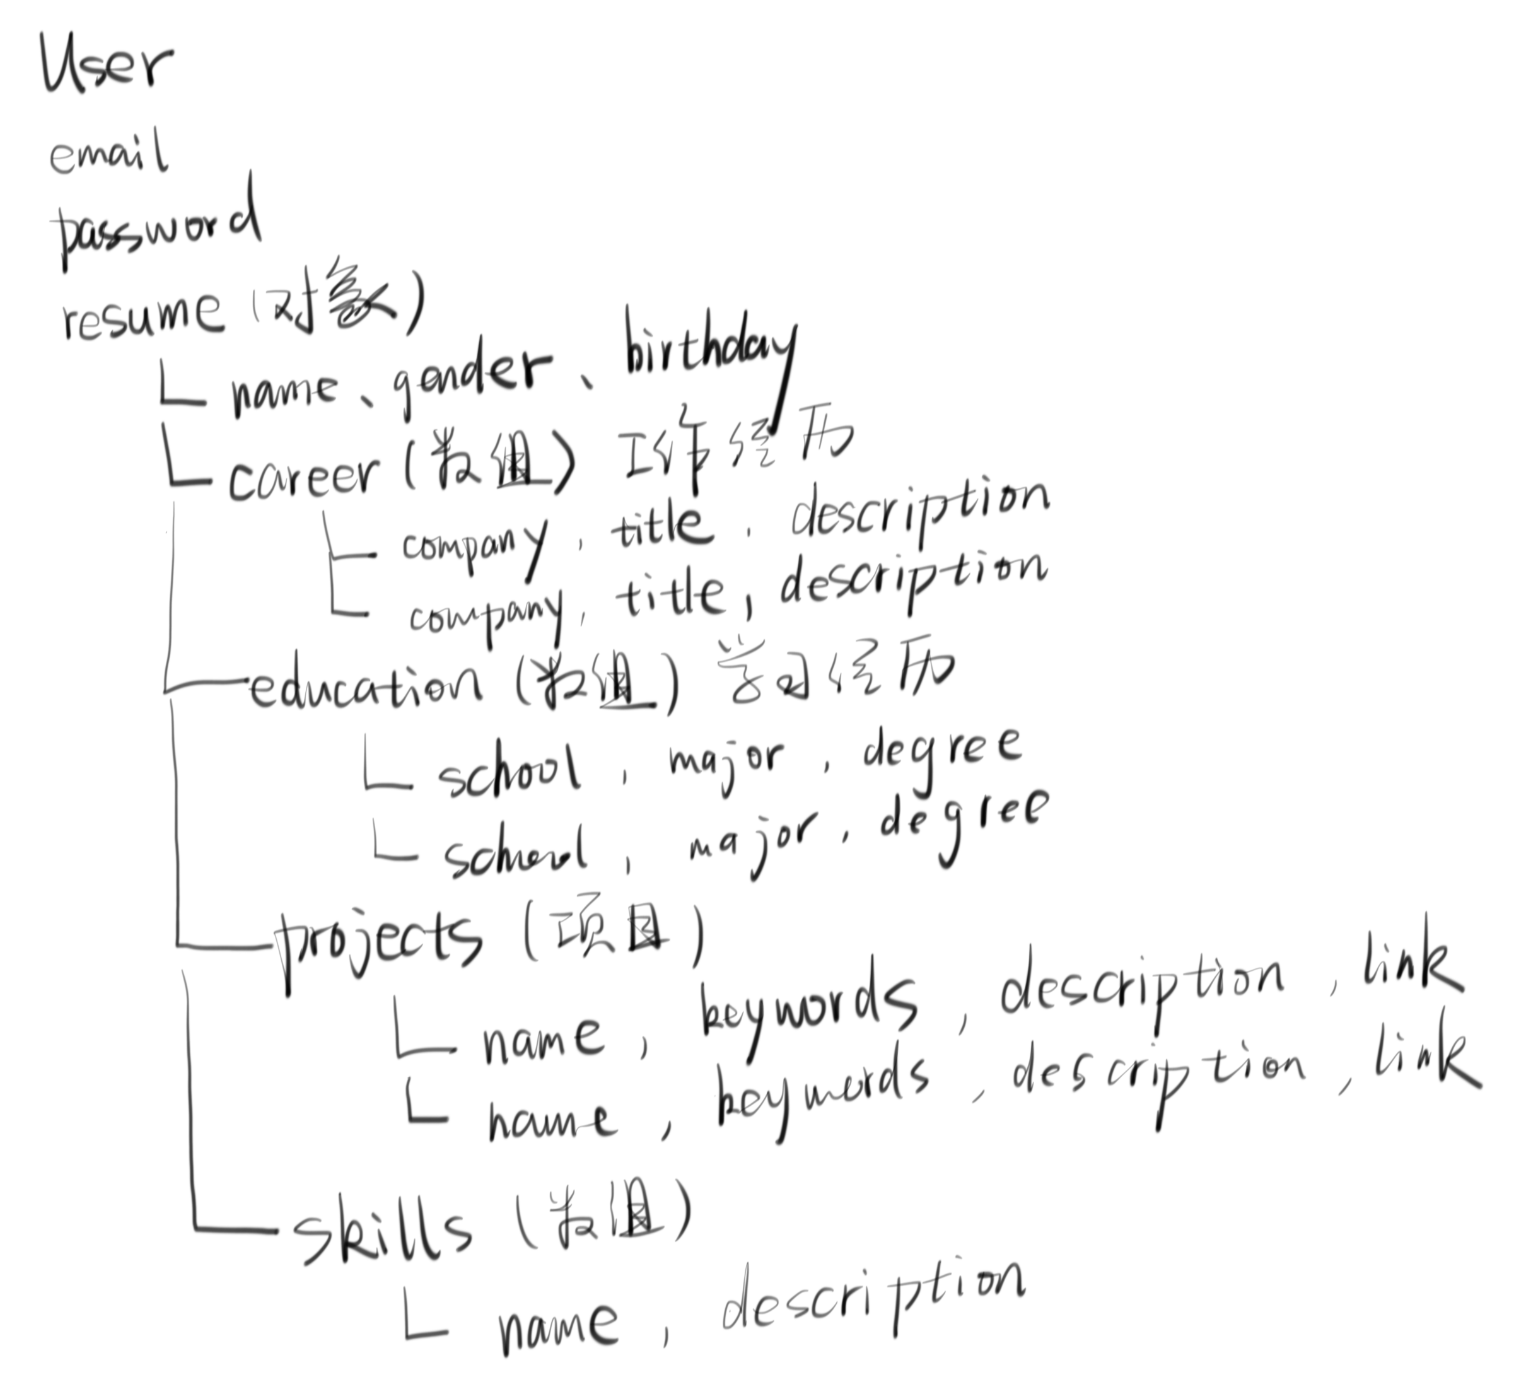 User
email
password
resume (对象)
name、gender、birthday
career (数组) 工作经历
company, title, description
company, title, description
education (数组) 学习经历
school, major, degree
school, major, degree
projects (项目)
name, keywords, description, link
name, keywords, description, link
skills (数组)
name, description